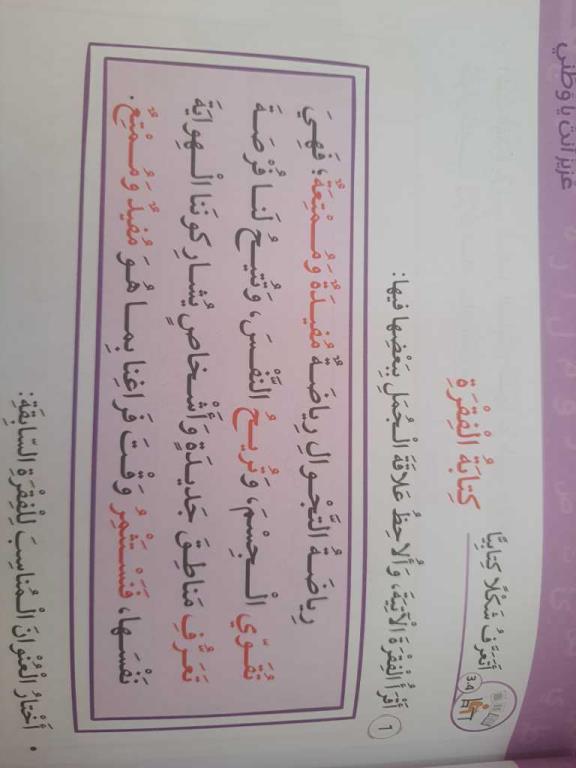 عزيز أنت يا وطني
3.4
أَتَعَرَّفُ شَكْلًا كِتابِيًّا
كِتابَةُ الْفِقْرَةِ
1 أَقْرَأُ الْفِقْرَةَ الْآتِيَةَ، وَأُلاحِظُ عَلاقَةَ الْجُمَلِ بِبَعْضِها فيها:
رِياضَةُ التَّجْوالِ رِياضَةٌ مُفيدَةٌ وَمُمْتِعَةٌ؛ فَهِيَ
تُقَوّي الْجِسْمَ، وَتُريحُ النَّفْسَ، وَتُتيحُ لَنا فُرْصَةَ
تَعَرُّفِ مَناطِقَ جَديدَةٍ وَأَشْخاصٍ يُشارِكونَنا الْهِوايَةَ
نَفْسَها، فَنَسْتَثْمِرُ وَقْتَ فَراغِنا بِما هُوَ مُفيدٌ وَمُمْتِعٌ.
• أَخْتارُ الْعُنْوانَ الْمُناسِبَ لِلْفِقْرَةِ السّابِقَةِ: